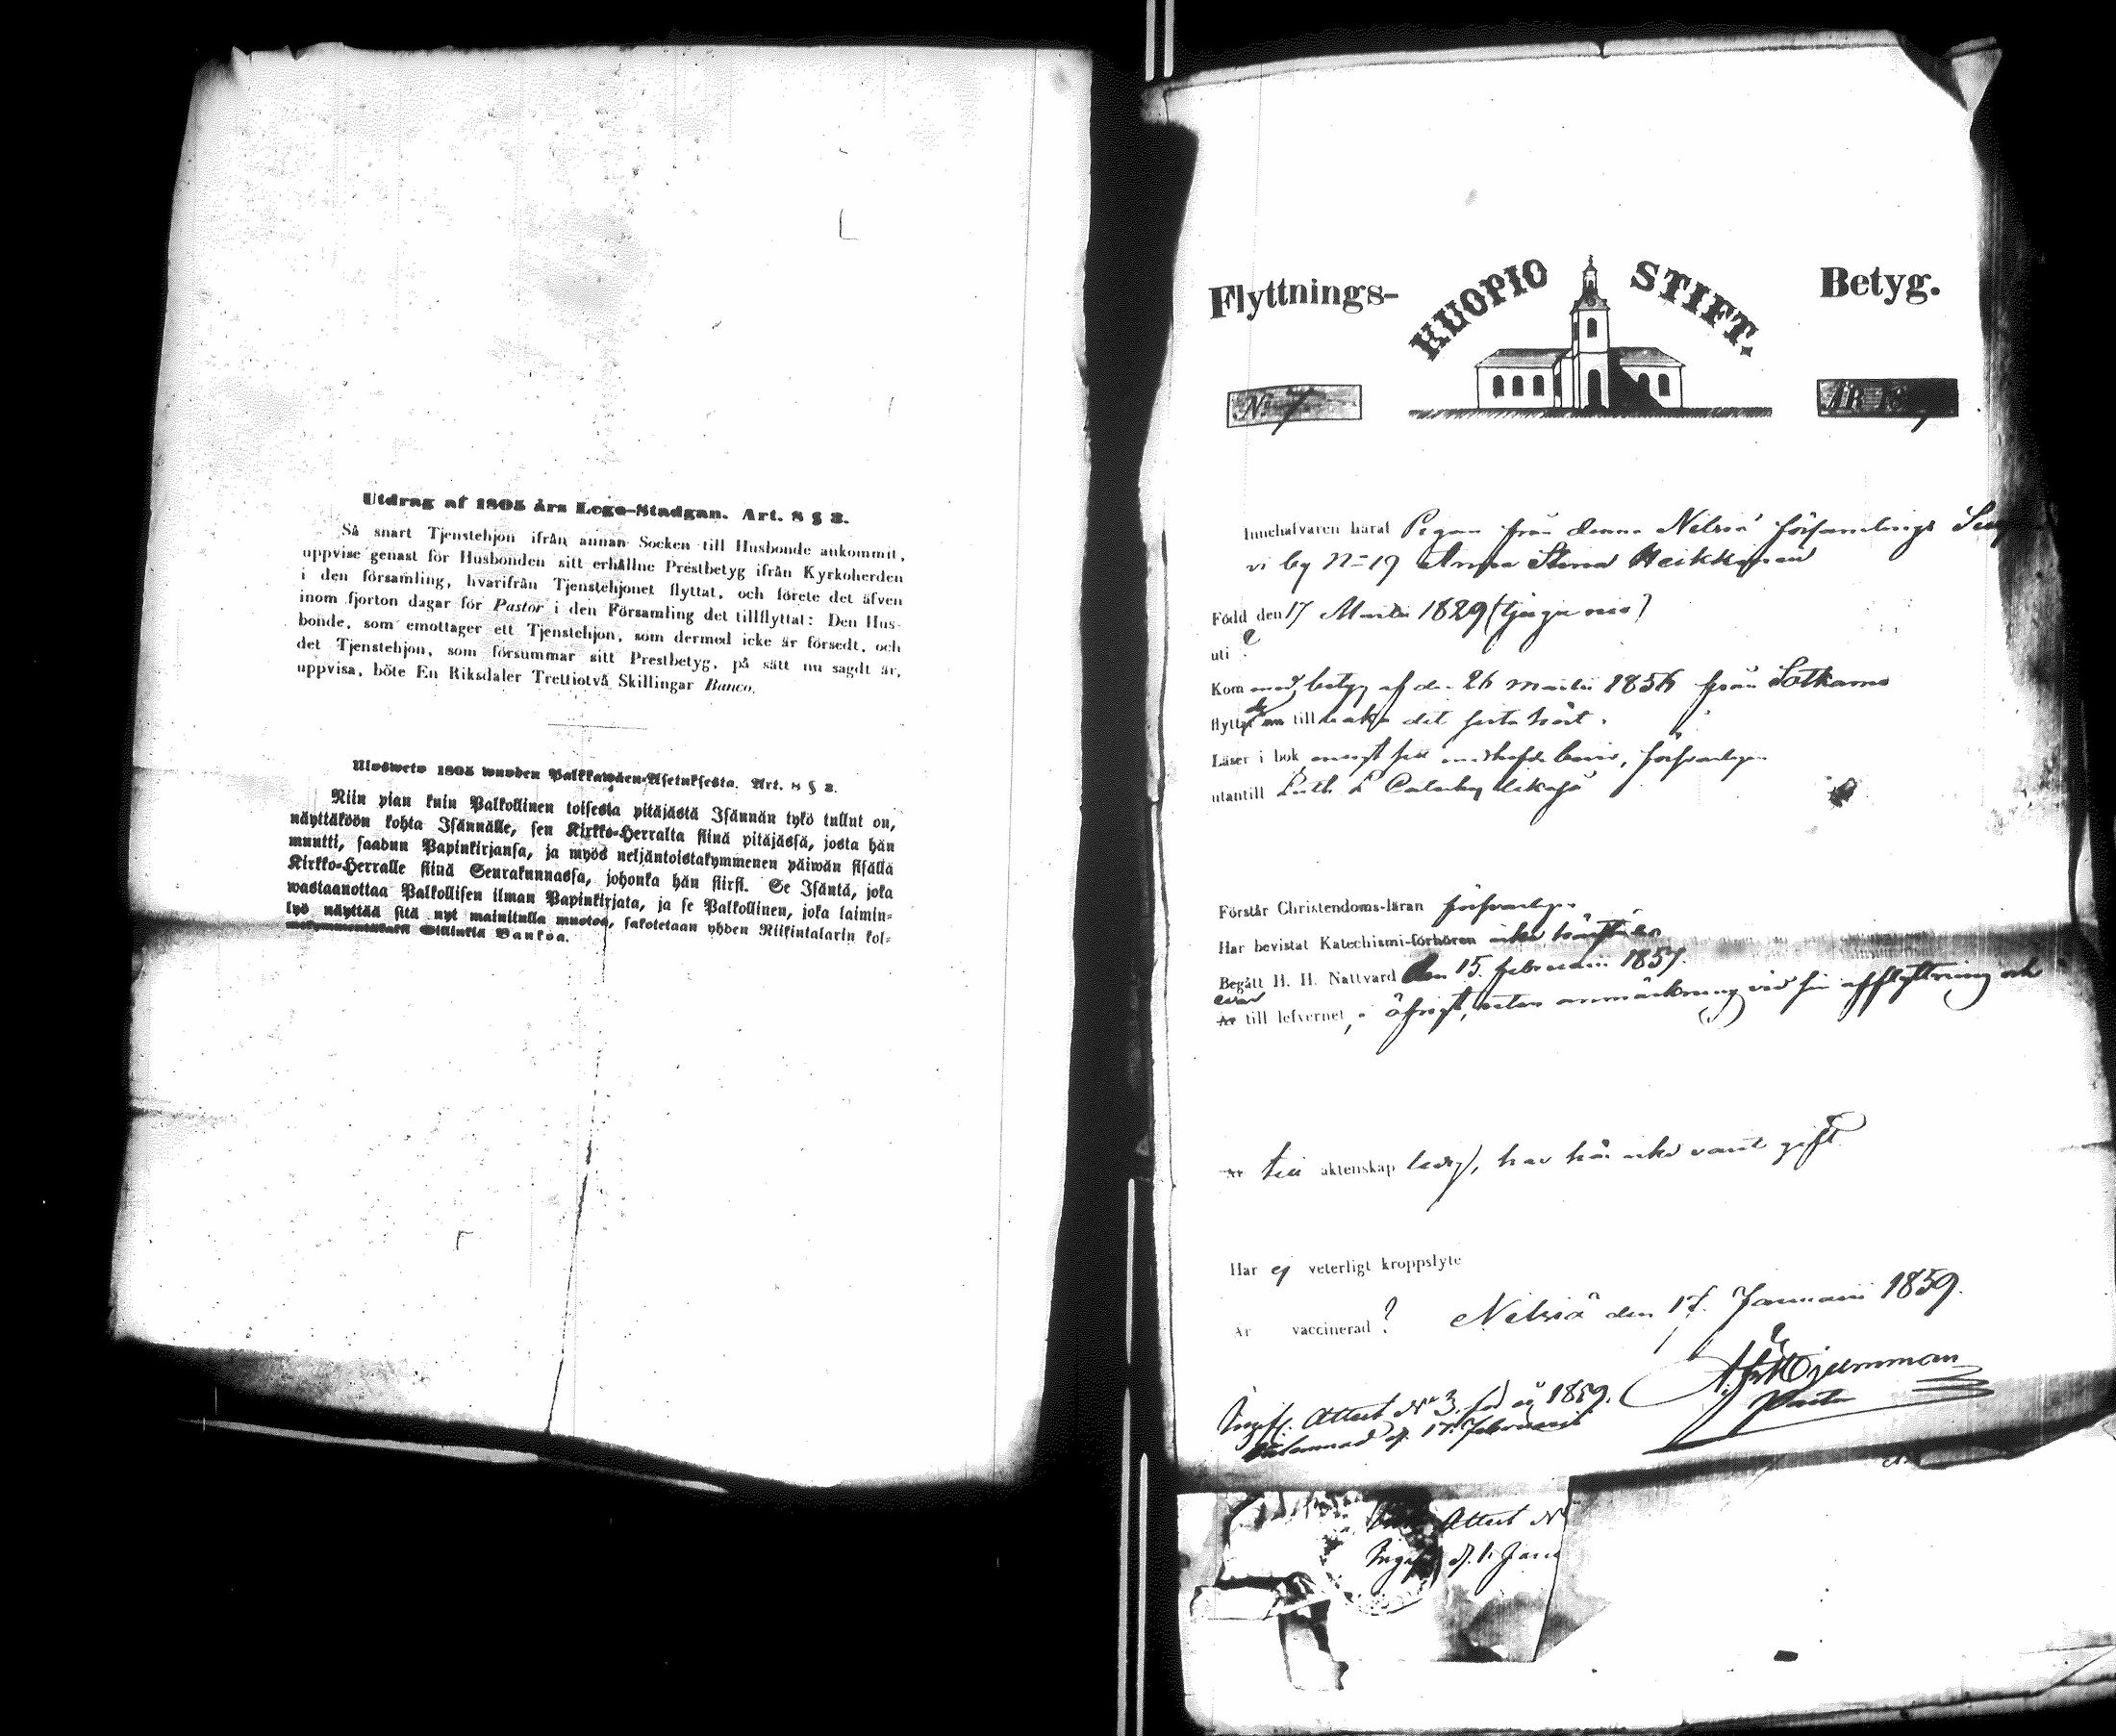 Utdrag af 1805 års Lego-Stadgan. Art. 8 § 3.
Så snart Tjenstehjon ifrån annan Socken till Husbonde ankommit,
uppvise genast för Husbonden sitt erhållne Prestbetyg ifrån Kyrkoherden
i den församling, hvarifrån Tjenstehjonet flyttat, och förete det äfven
inom fjorton dagar för Pastor i den Församling det tillflyttat: Den Hus-
bonde, som emottager ett Tjenstehjon, som dermed icke är försedt, och
det Tjenstehjon, som försummar sitt Prestbetyg, på sätt nu sagdt är,
uppvisa, böte En Riksdaler Trettiotvå Skillingar Banco.
Uloswето 1805 wuoden Palkkawäen-Asetuksesta. Art. 8 § 3.
Niin pian kuin Palkollinen toisesta pitäjästä Isännän tykö tullut on,
näyttäköön kohta Isännälle, sen Kirkko-Herralta siinä pitäjässä, josta hän
muutti, saadun Papinkirjansa, ja myös neljäntoistakymmenen päiwän sisällä
Kirkko-Herralle siinä Seurakunnassa, johonka hän siirsi. Se Isäntä, joka
wastaanottaa Palkollisen ilman Papinkirjata, ja se Palkollinen, joka laimin-
lyö näyttää sitä nyt mainitulla muotoa, sakotetaan yhden Riikintalarin kol-
mekymmentäkaksi Skillinkiä Bankoa.
Flyttnings- KUOPIO STIFT. Betyg.
N: 7 ÅR 18
Innehafvaren häraf Pigan från denna Nilsiä församlings
by N=19 Anna Stina Heikkinen
Född den 17 Martii 1829 (tjugu nio)
uti ?
Kom med betyg af den 26 Martii 1856 från Sotkamo
flyttar nu tillbaka det
Läser i bok försvarligen
utantill Luth. L. Cateches
Förstår Christendoms-läran försvarligen
Har bevistat Katechismi-förhören
Begått H. H. Nattvard den 15 februarii 1857.
Är till lefvernet, i öfrigt, utan anmärkning vid sin afflyttning och
Är till äktenskap ledig, har här icke varit gift
Har ej veterligt kroppslyte
Är vaccinerad ? Nilsiä den 17. Januarii 1859.
Pastor
Attest N:o 3. 1859.
d. 17. Februarii
Attest N
d. 1. Janu